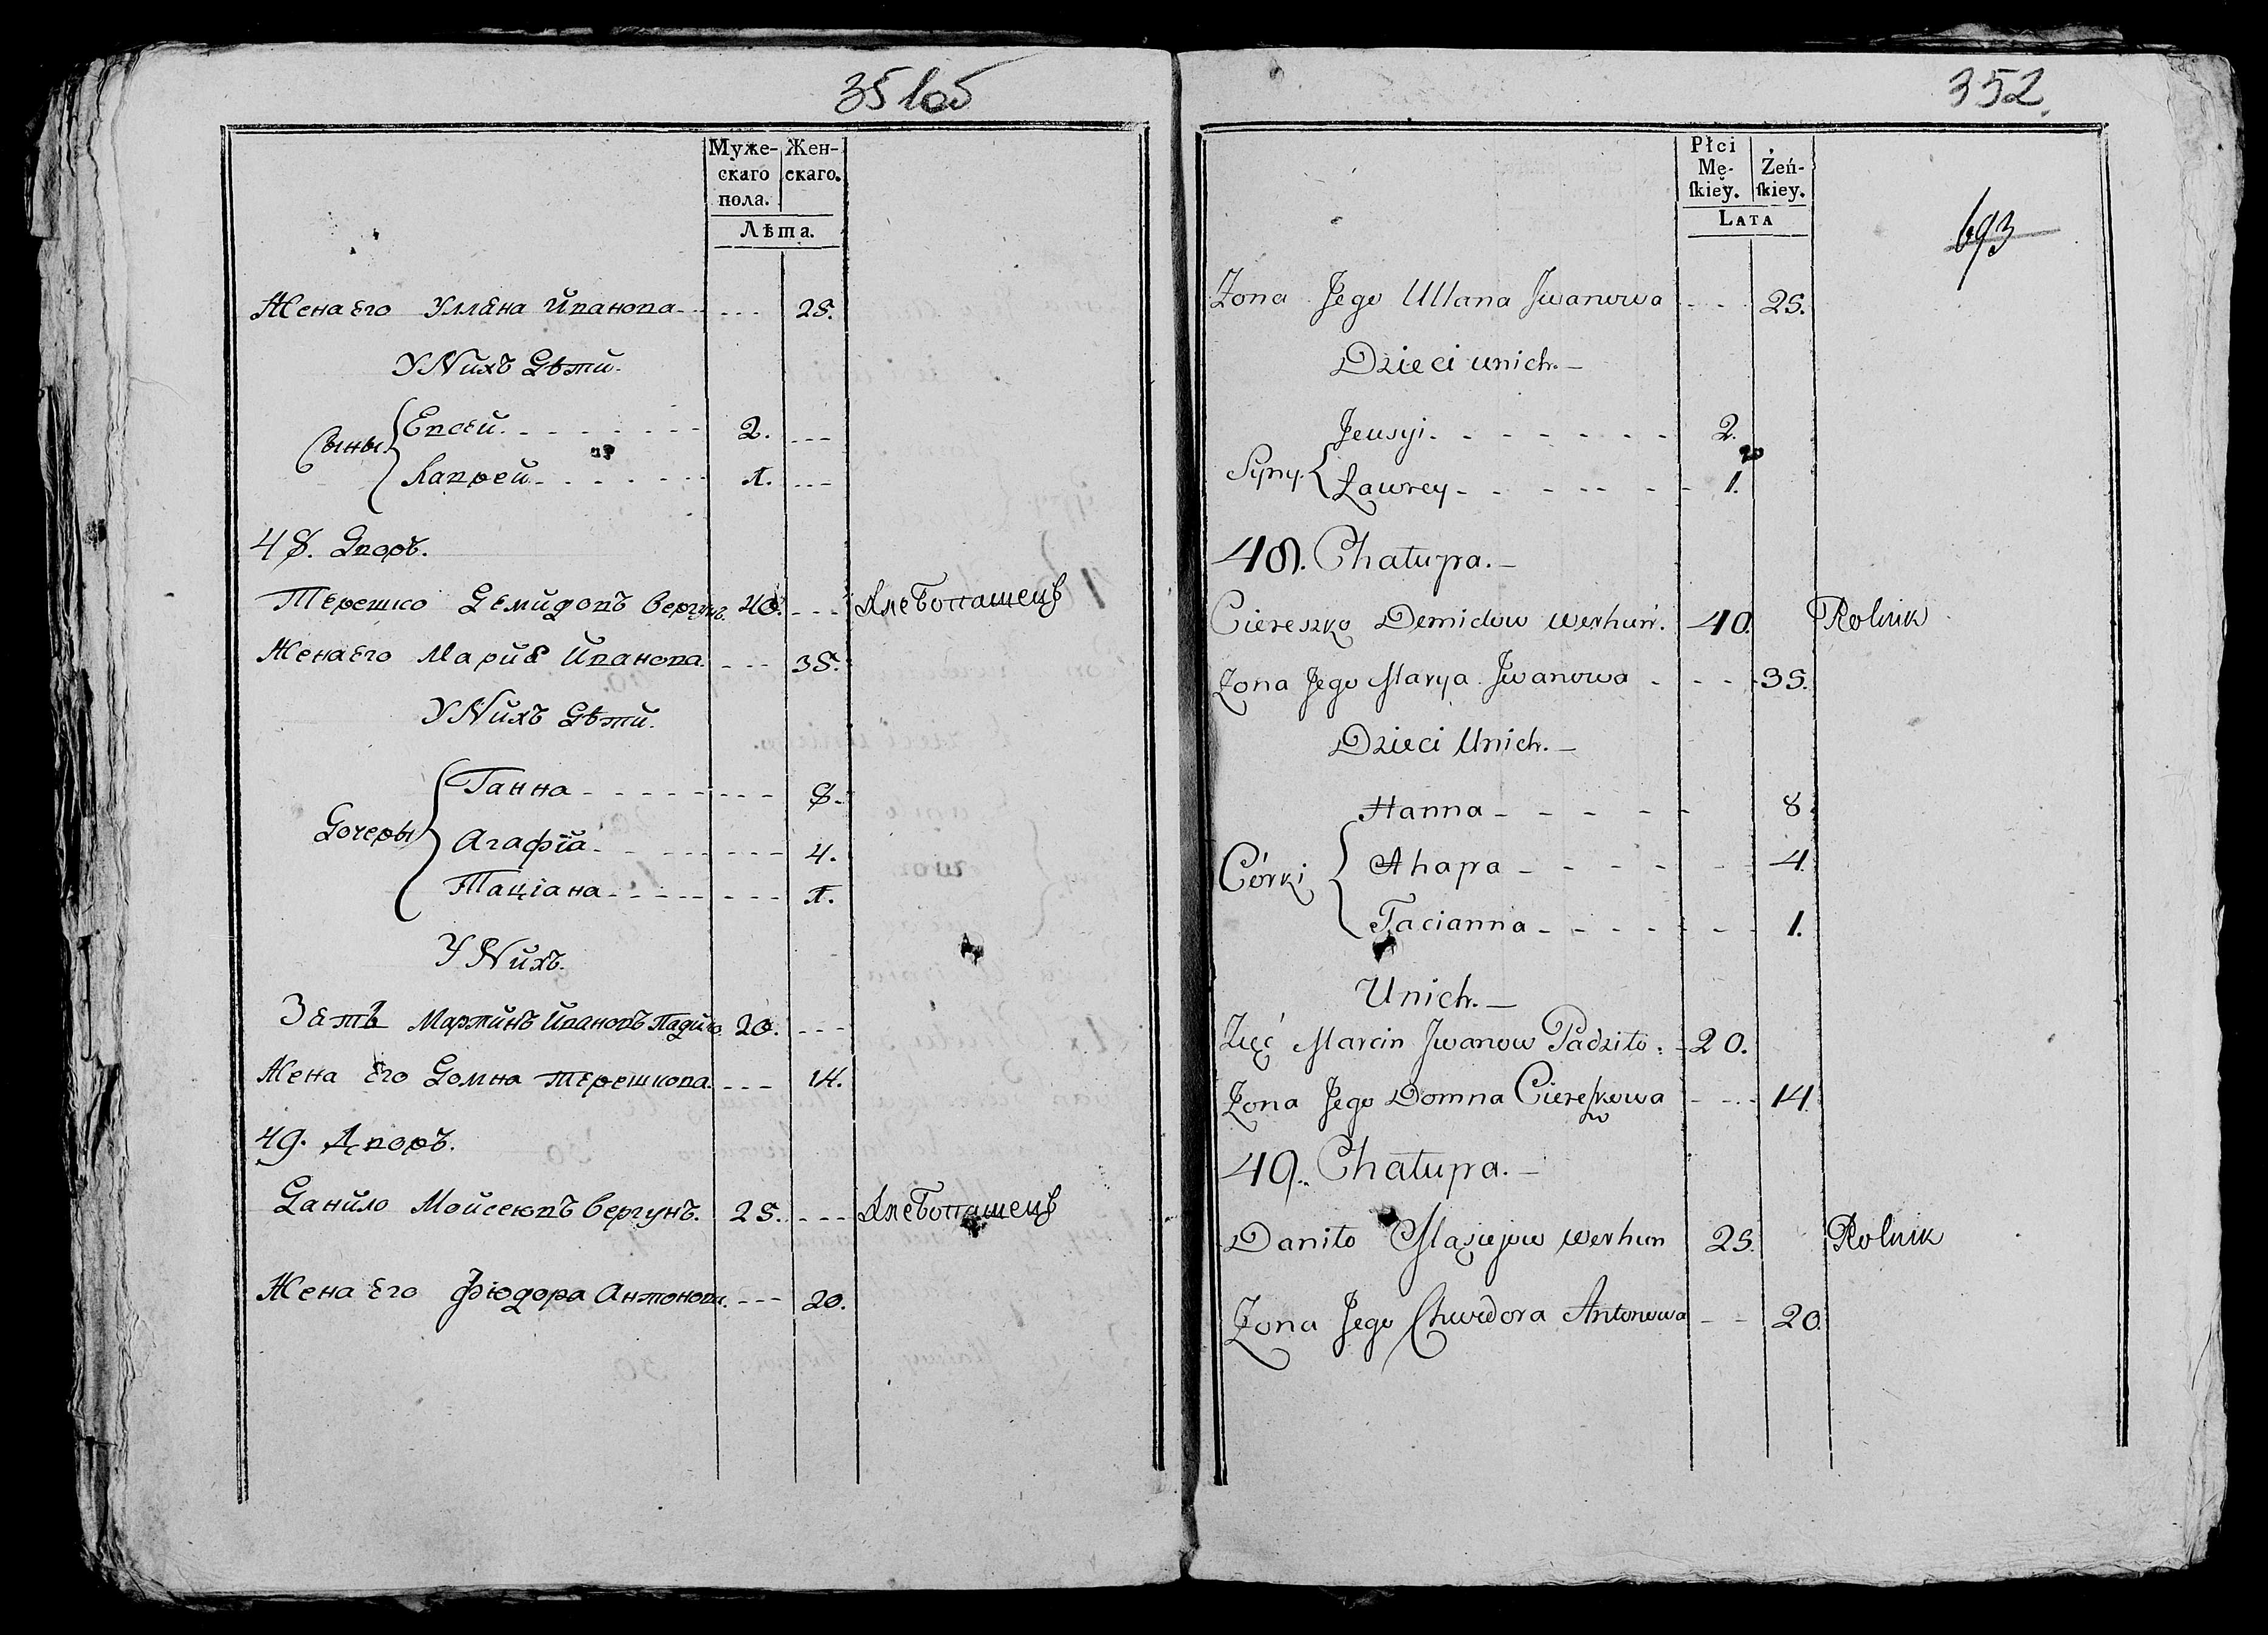 351об
Муже-
скаго
пола.
Жен-
скаго.
Лѣта.
Жена Его Уляна Иванова - - - 25.
У Нихъ Дѣти.
Сыны
Евсей - - - 2. - - -
Лаврей - - - 1. - - -
48. Дворъ.
Терешко Демидовъ Вергунъ. 40. - - - Хлебопашецъ
Жена Его Мария Иванова - - - 35.
У Нихъ Дѣти.
Дочеры
Ганна - - - 8.
Агафіа - - - 4.
Таціана - - - 1.
У Нихъ.
Зять Мартинъ Ивановъ 20. - - -
Жена Его Домна Терешкова - - - 14.
49. Дворъ.
Данило Мойсеювъ Вергунъ. 25. - - - Хлебопашецъ
Жена Его Фіюдора Антонова - - - 20.
352
Płci
Mę-
ſkiey.
Żeń-
ſkiey.
LATA
693
Żona Jego Ullana Jwanowa - - - 25.
Dzieci unich. -
Syny.
Jeusyi - - - 2.
Ławrey - - - 1.
48. Chałupa. -
Ciereszko Demidow Werhuń. 40. Rolnik
Żona Jego Marya Jwanowa - - - 35.
Dzieci Unich. -
Córki
Hanna - - - 8
Ahapa - - - 4
Tacianna - - - 1.
Unich. -
Zięć Marcin Jwanow Padziło. - 20.
Żona Jego DomnaCiereſzkowa - - - 14.
49. Chałupa. -
Daniło Werhun 25. Rolnik
Żona Jego Chwedora Antonowa - - 20.